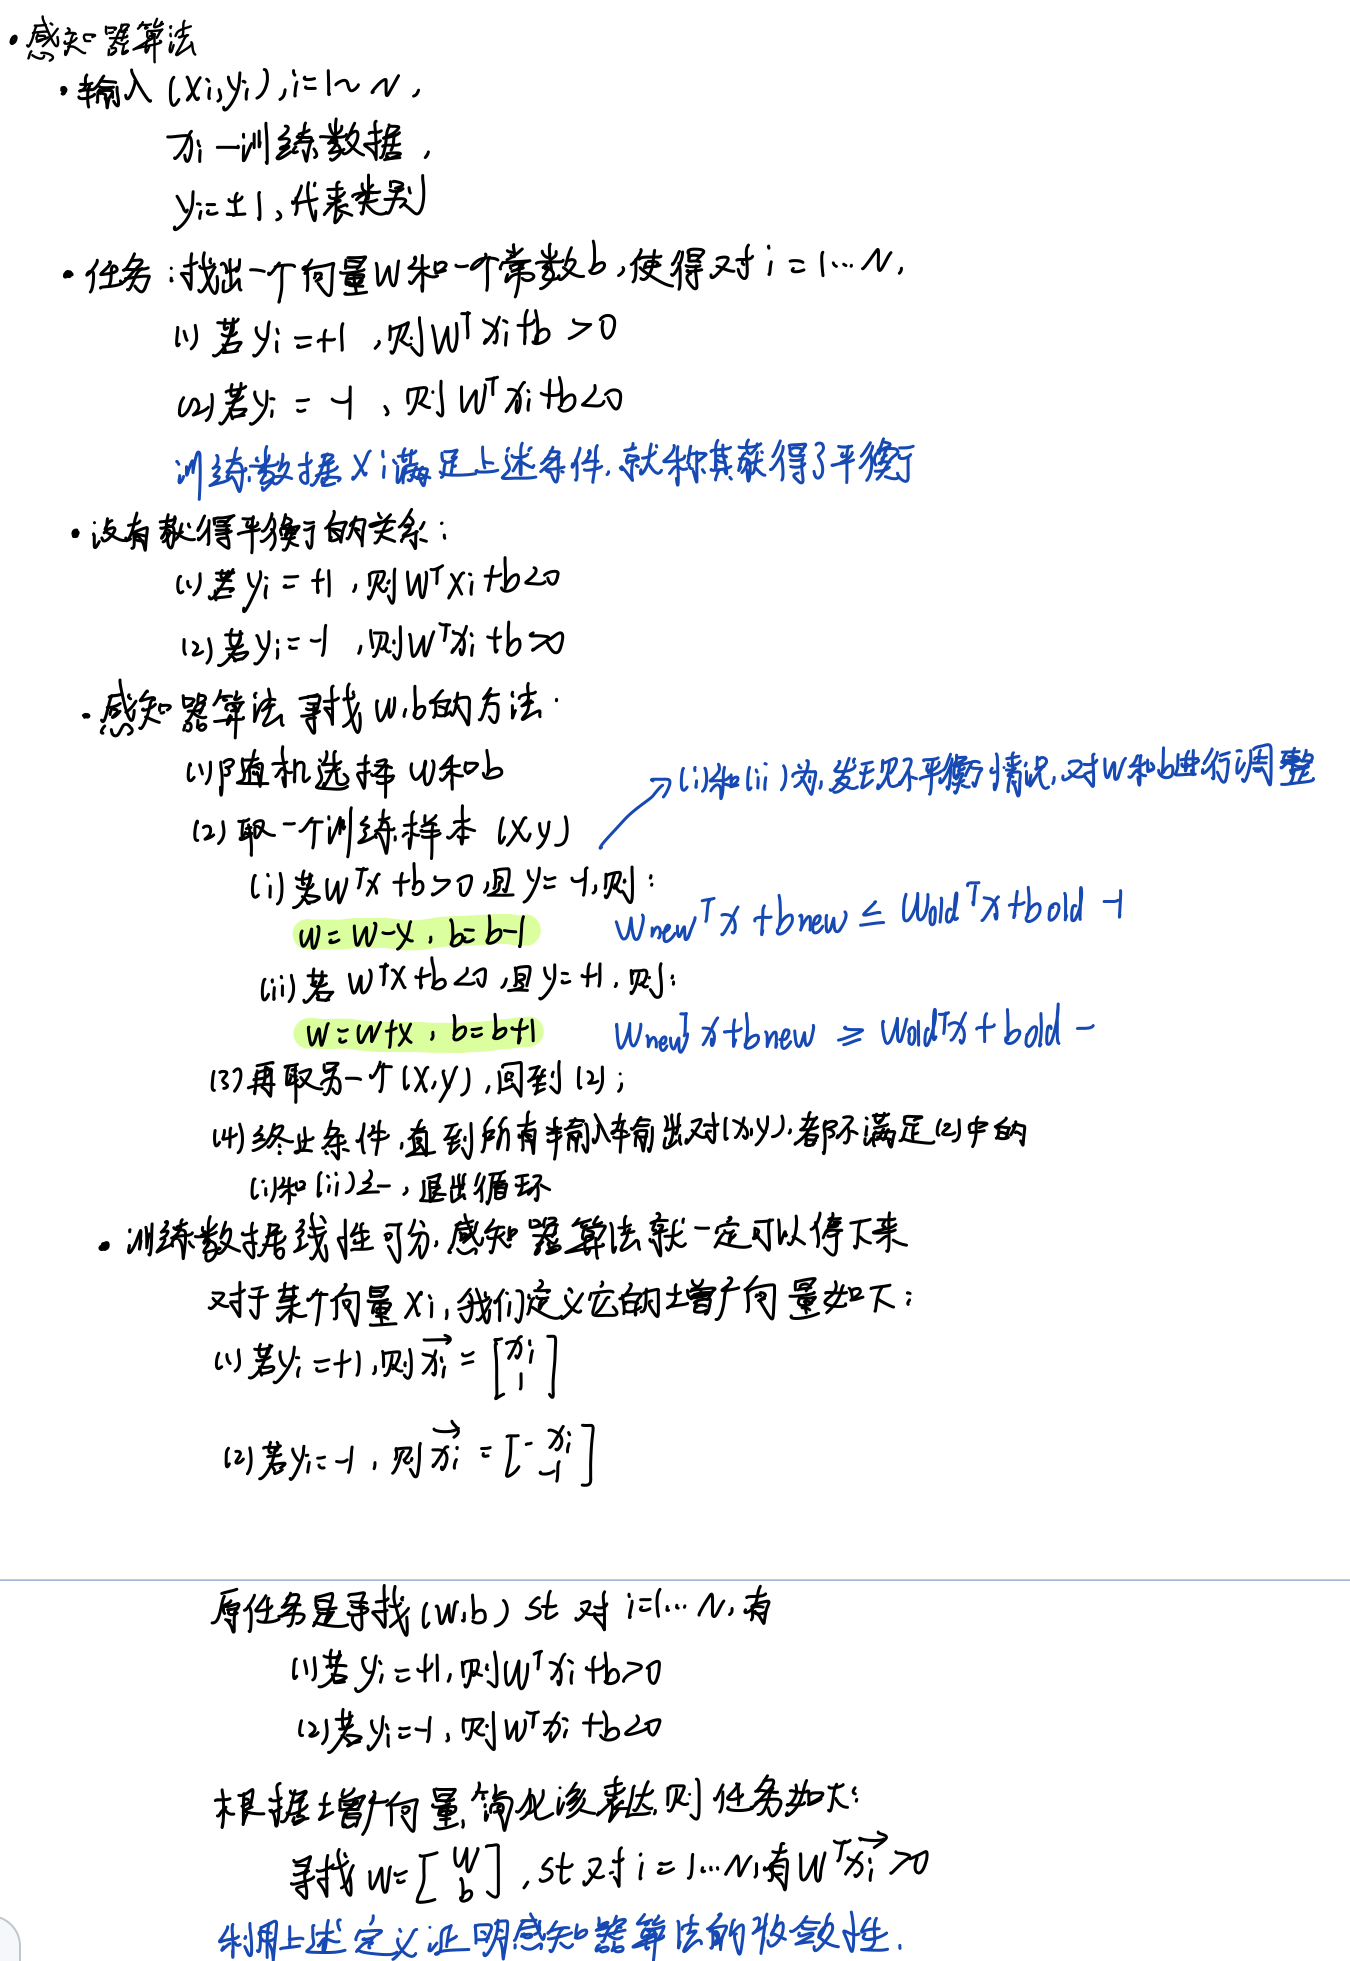 • 感知器算法
• 输入 (xi,yi),i=1~N,
xi—训练数据,
yi=±1、代表类别
• 任务:找出一个向量W和一个常数b,使得对i=1…N,
(1) 若yi=+1,则Wᵀxi+b>0
(2) 若yi=-1、则Wᵀxi+b<0
训练数据xi满足上述条件.就称其获得了平衡
• 没有获得平衡的关系:
(1) 若yi=+1,则Wᵀxi+b<0
(2) 若yi=-1,则Wᵀxi+b>0
• 感知器算法寻找W.b的方法.
(1) 随机选择W和b
→(i)和(ii)为,发现不平衡情况,对W和b进行调整
(2) 取一个训练样本 (x,y)
(i) 若Wᵀx+b>0且y=-1,则:
W=W-x,b=b-1 Wnewᵀx+bnew ≤ Woldᵀx+bold -1
(ii) 若Wᵀx+b<0且y=+1,则:
W=W+x,b=b+1 Wnewᵀx+bnew ≥ Woldᵀx+bold -
(3) 再取另一个(x,y),回到(2);
(4) 终止条件,直到所有输入输出对(x,y).都不满足(2)中的
(i)和(ii)之一,退出循环
• 训练数据线性可分,感知器算法就一定可以停下来
对于某个向量xi,我们定义它的增广向量如下:
(1) 若yi=+1,则x⃗i=[xi 1]
(2) 若yi=-1,则x⃗i=[-xi -1]
原任务是寻找(W.b) st 对 i=1…N,有
(1) 若yi=+1,则Wᵀxi+b>0
(2) 若yi=-1,则Wᵀxi+b<0
根据增广向量,简化该表达,则任务如下:
寻找W=[W b],st对i=1…N,有Wᵀx⃗i>0
利用上述定义证明感知器算法的收敛性.